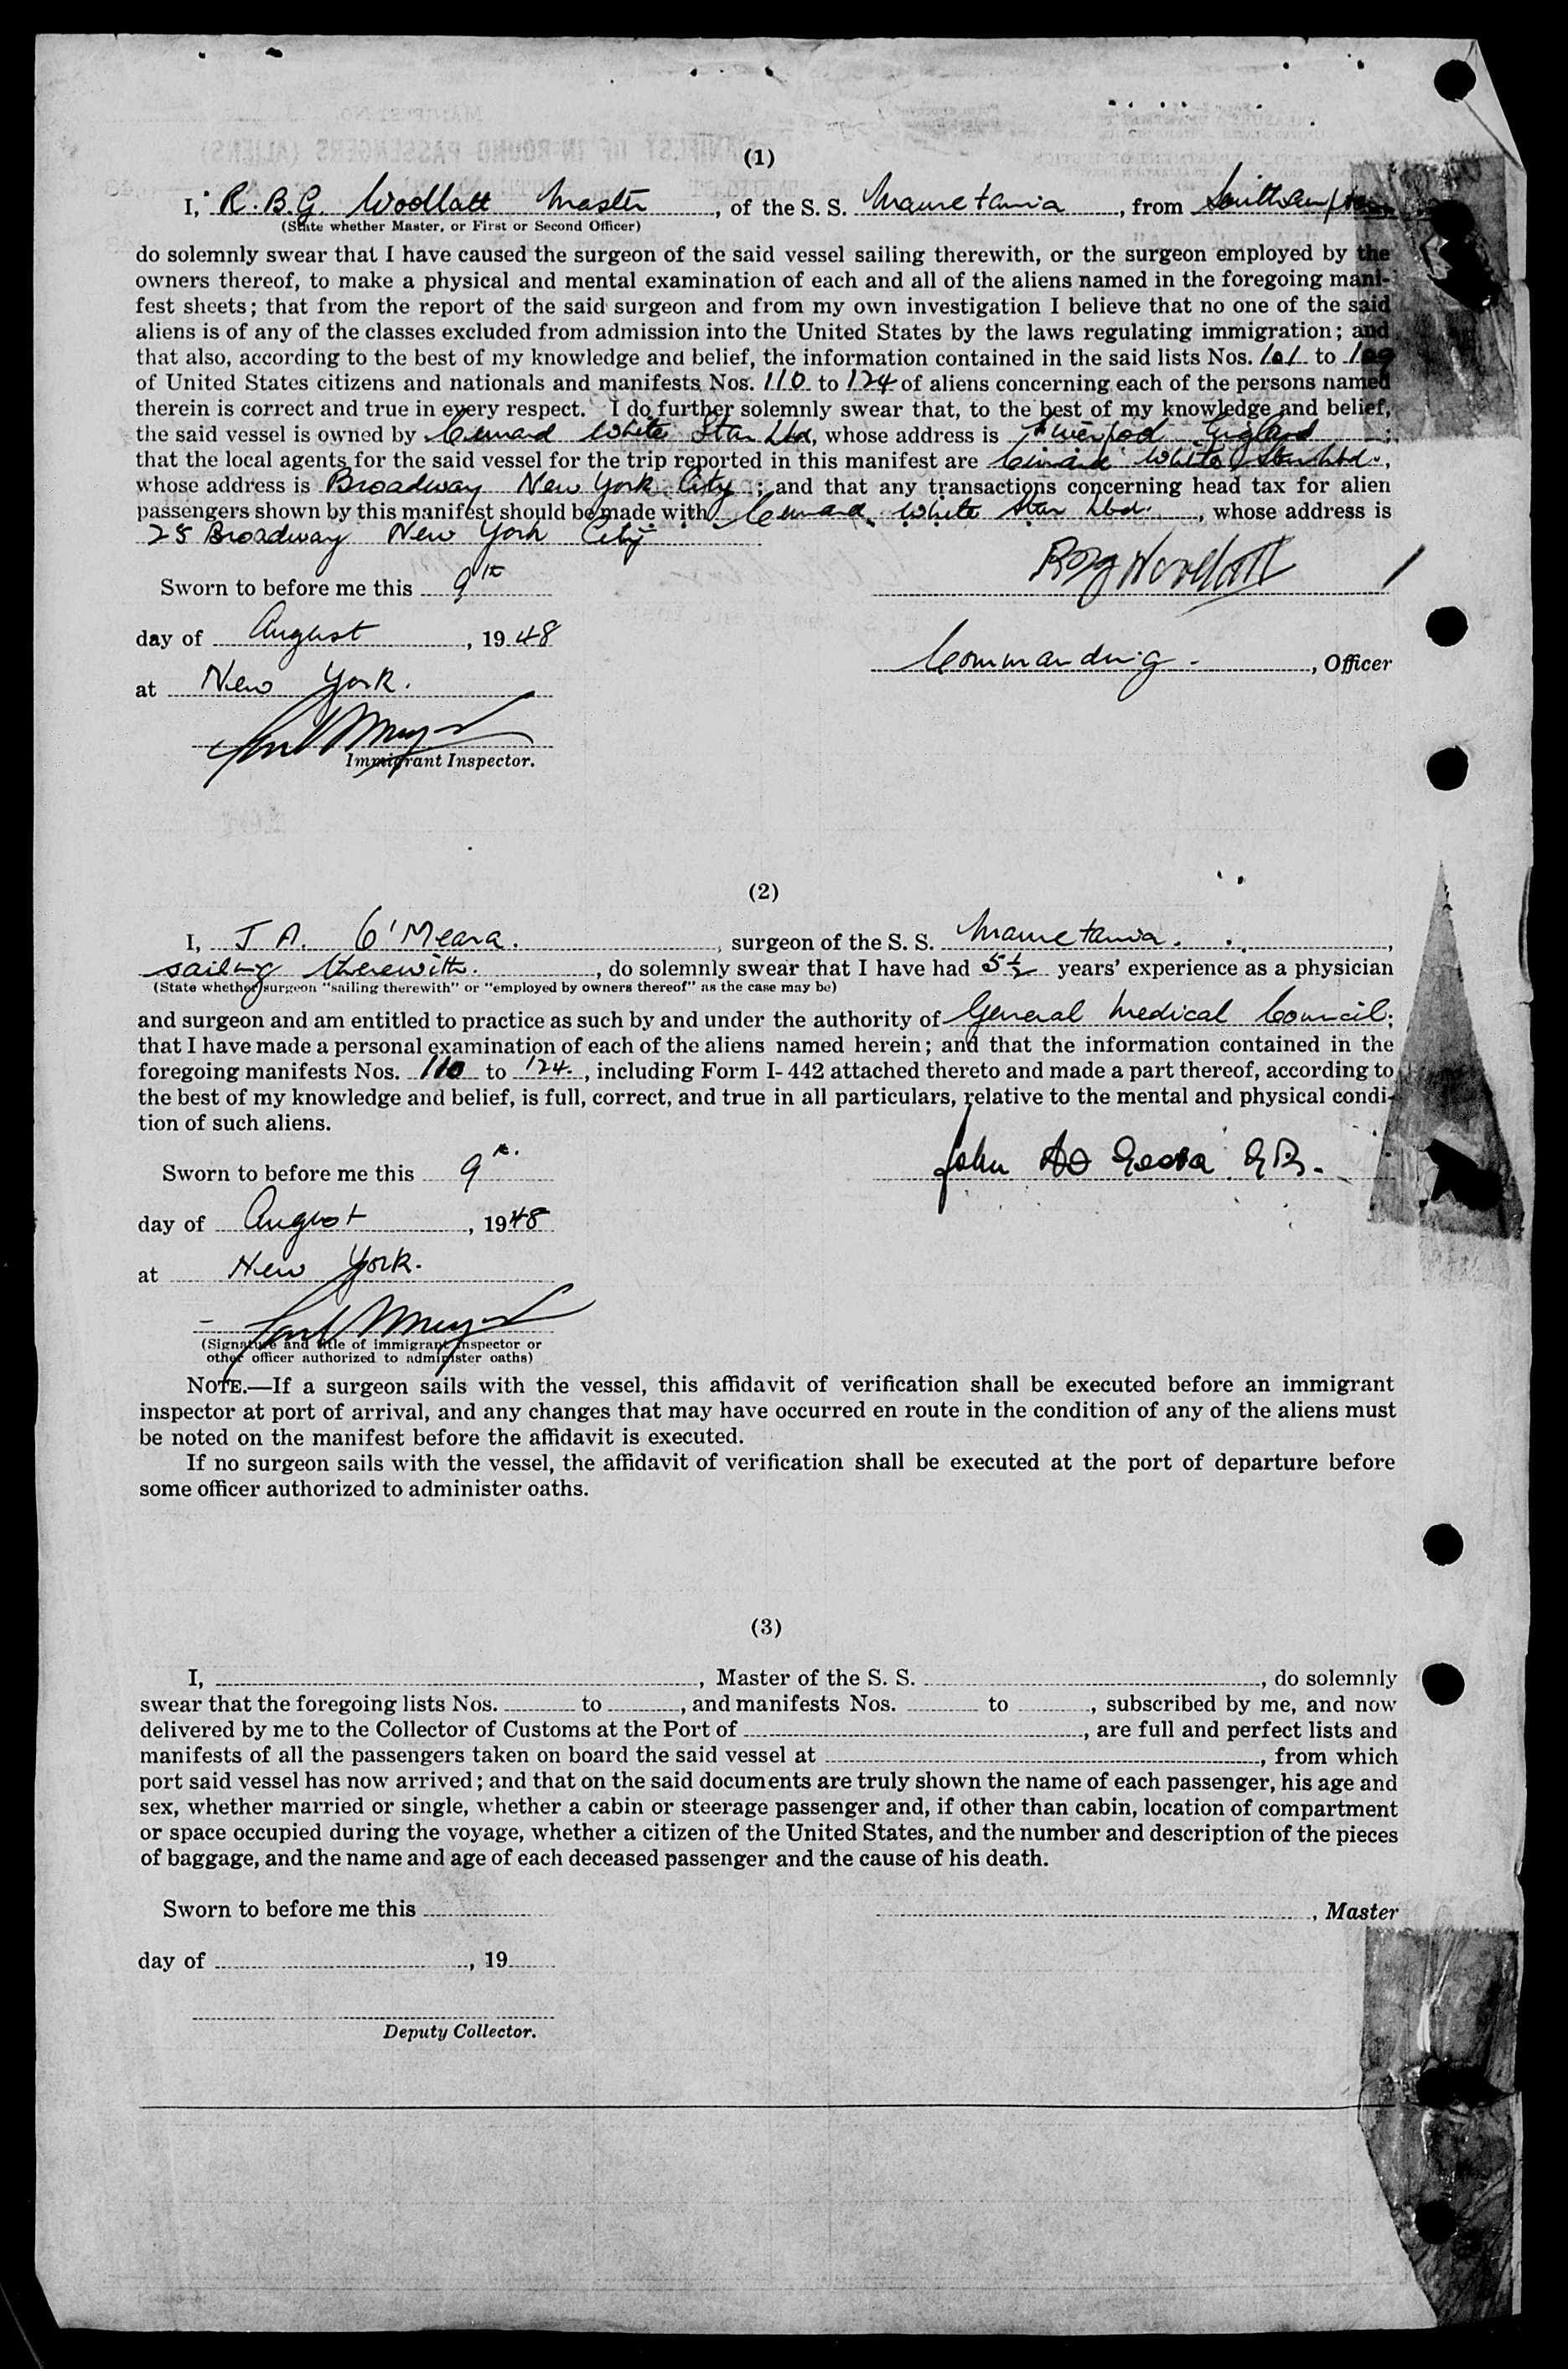 (1)
I, R. B. G. Woollatt Master, of the S. S. Mauretania, from Southampton
(State whether Master, or First or Second Officer)
do solemnly swear that I have caused the surgeon of the said vessel sailing therewith, or the surgeon employed by the
owners thereof, to make a physical and mental examination of each and all of the aliens named in the foregoing mani-
fest sheets; that from the report of the said surgeon and from my own investigation I believe that no one of the said
aliens is of any of the classes excluded from admission into the United States by the laws regulating immigration; and
that also, according to the best of my knowledge and belief, the information contained in the said lists Nos. 101 to 109
of United States citizens and nationals and manifests Nos. 110 to 124 of aliens concerning each of the persons named
therein is correct and true in every respect. I do further solemnly swear that, to the best of my knowledge and belief,
the said vessel is owned by Cunard White Star Ltd, whose address is Liverpool England;
that the local agents for the said vessel for the trip reported in this manifest are Cunard White Star Ltd.,
whose address is Broadway New York City; and that any transactions concerning head tax for alien
passengers shown by this manifest should be made with Cunard White Star Ltd., whose address is
25 Broadway New York City
Sworn to before me this 9th
day of August, 1948
Commanding, Officer
at New York.
Immigrant Inspector.
(2)
I, J A. O'Meara., surgeon of the S. S. Mauretania.,
sailing therewith., do solemnly swear that I have had 5½ years' experience as a physician
(State whether surgeon "sailing therewith" or "employed by owners thereof" as the case may be)
and surgeon and am entitled to practice as such by and under the authority of General Medical Council;
that I have made a personal examination of each of the aliens named herein; and that the information contained in the
foregoing manifests Nos. 110 to 124., including Form I-442 attached thereto and made a part thereof, according to
the best of my knowledge and belief, is full, correct, and true in all particulars, relative to the mental and physical condi-
tion of such aliens.
Sworn to before me this 9th.
day of August, 1948
at New York.
(Signature and title of immigrant inspector or
other officer authorized to administer oaths)
NOTE.—If a surgeon sails with the vessel, this affidavit of verification shall be executed before an immigrant
inspector at port of arrival, and any changes that may have occurred en route in the condition of any of the aliens must
be noted on the manifest before the affidavit is executed.
If no surgeon sails with the vessel, the affidavit of verification shall be executed at the port of departure before
some officer authorized to administer oaths.
(3)
I, , Master of the S. S. , do solemnly
swear that the foregoing lists Nos. to , and manifests Nos. to , subscribed by me, and now
delivered by me to the Collector of Customs at the Port of , are full and perfect lists and
manifests of all the passengers taken on board the said vessel at , from which
port said vessel has now arrived; and that on the said documents are truly shown the name of each passenger, his age and
sex, whether married or single, whether a cabin or steerage passenger and, if other than cabin, location of compartment
or space occupied during the voyage, whether a citizen of the United States, and the number and description of the pieces
of baggage, and the name and age of each deceased passenger and the cause of his death.
Sworn to before me this
, Master
day of , 19
Deputy Collector.